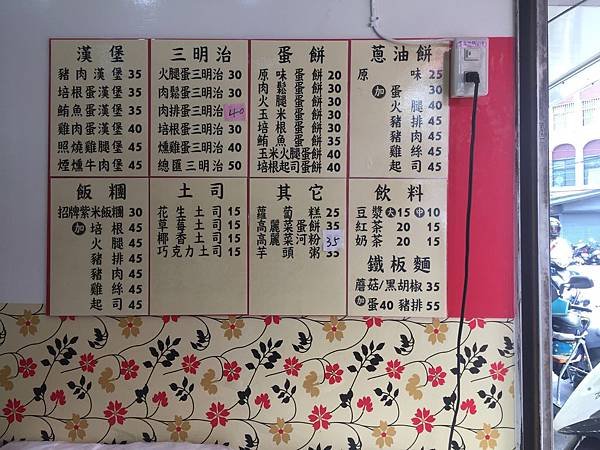 漢堡
豬肉漢堡 35
培根蛋漢堡 35
鮪魚蛋漢堡 35
雞肉蛋漢堡 40
照燒雞腿堡 45
煙燻牛肉堡 45
三明治
火腿蛋三明治 30
肉鬆蛋三明治 30
肉排蛋三明治 40
培根蛋三明治 30
燻雞蛋三明治 40
總匯三明治 50
蛋餅
原味蛋餅 20
肉鬆蛋餅 30
火腿蛋餅 30
玉米蛋餅 30
培根蛋餅 30
鮪魚蛋餅 30
玉米火腿蛋餅 40
培根起司蛋餅 40
蔥油餅
原味 25
加 蛋 30
火腿 40
豬排 45
豬肉 45
雞絲 45
起司 40
飯糰
招牌紫米飯糰 30
加 培根 45
火腿 45
豬排 45
豬肉 45
雞絲 45
起司 45
土司
花生土司 15
草莓土司 15
椰香土司 15
巧克力土司 15
其它
蘿蔔糕 25
高麗菜蛋餅 35
高麗菜河粉 35
芋頭粥 35
飲料
豆漿 大 15 中 10
紅茶 20 15
奶茶 20 15
鐵板麵
蘑菇/黑胡椒 35
加 蛋40 豬排 55